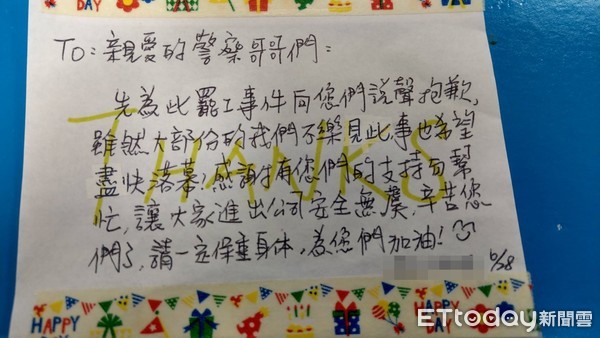 DAY
HAPPY
TO:親愛的警察哥哥們:
先為此罷工事件向您們說聲抱歉,
雖然大部份的我們不樂見此事也希望
盡快落幕,感謝有您們的支持與幫
忙,讓大家進出公司安全無虞,辛苦您
們了,請一定保重身体,為您們加油!
6/28
THANKS
HAPPY DAY
HAPPY DAY
ETtoday新聞雲